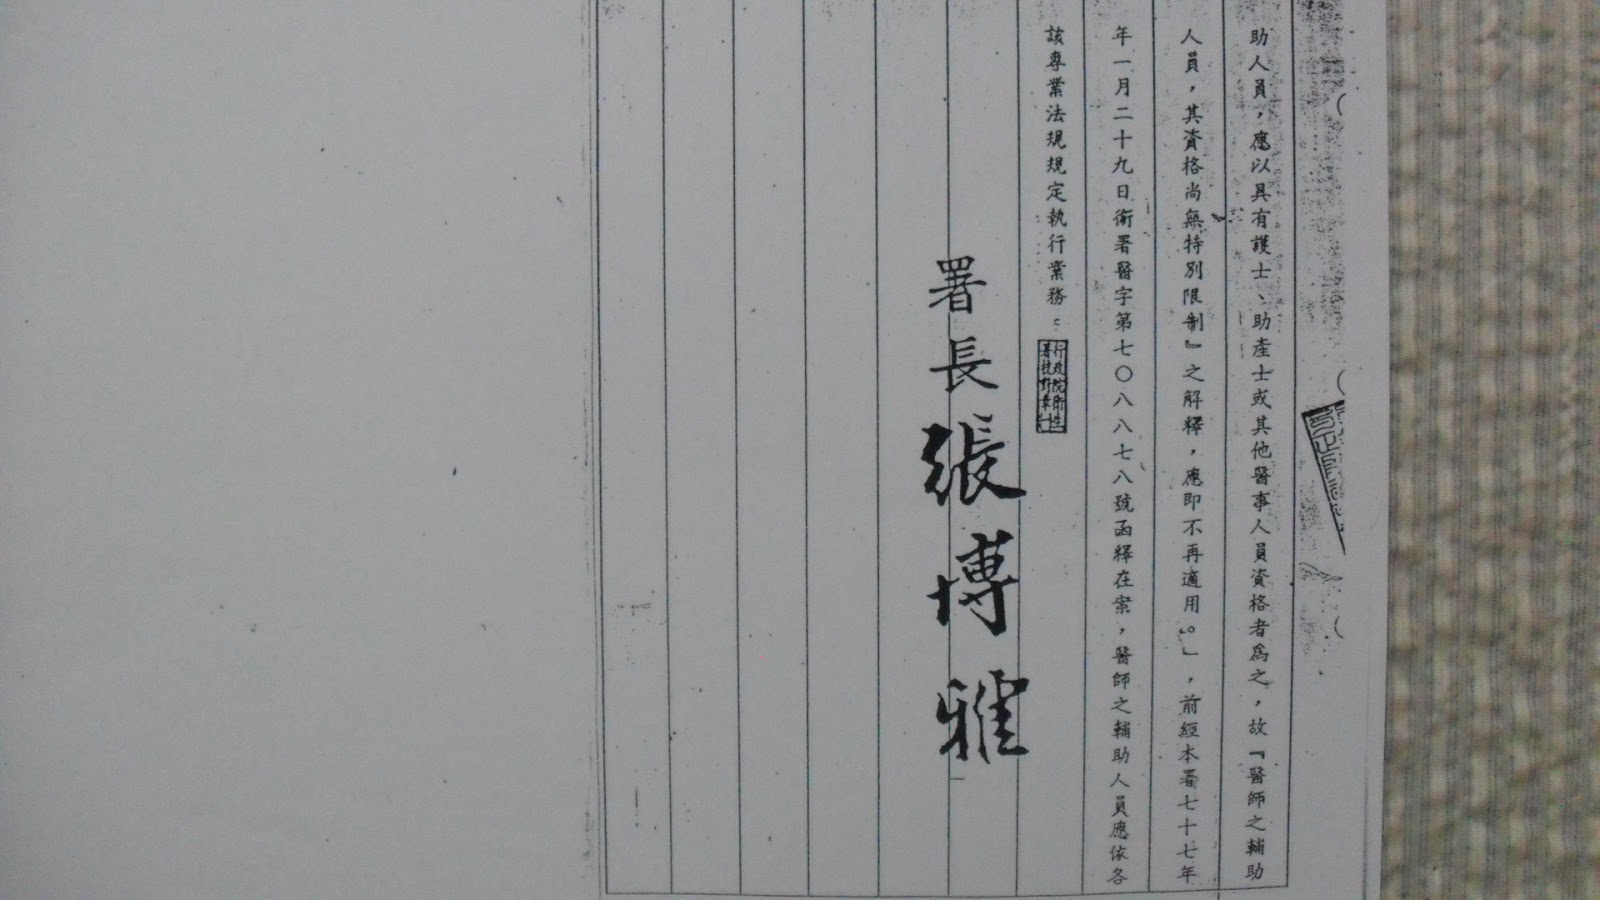 助人員，應以具有護士、助產士或其他醫事人員資格者爲之，故『醫師之輔助
人員，其資格尚無特別限制』之解釋，應即不再適用。」，前經本署七十七年
年一月二十九日衛署醫字第七〇八八七八號函釋在案，醫師之輔助人員應依各
該專業法規規定執行業務。
行政院衛生
署校對章
署長張博雅